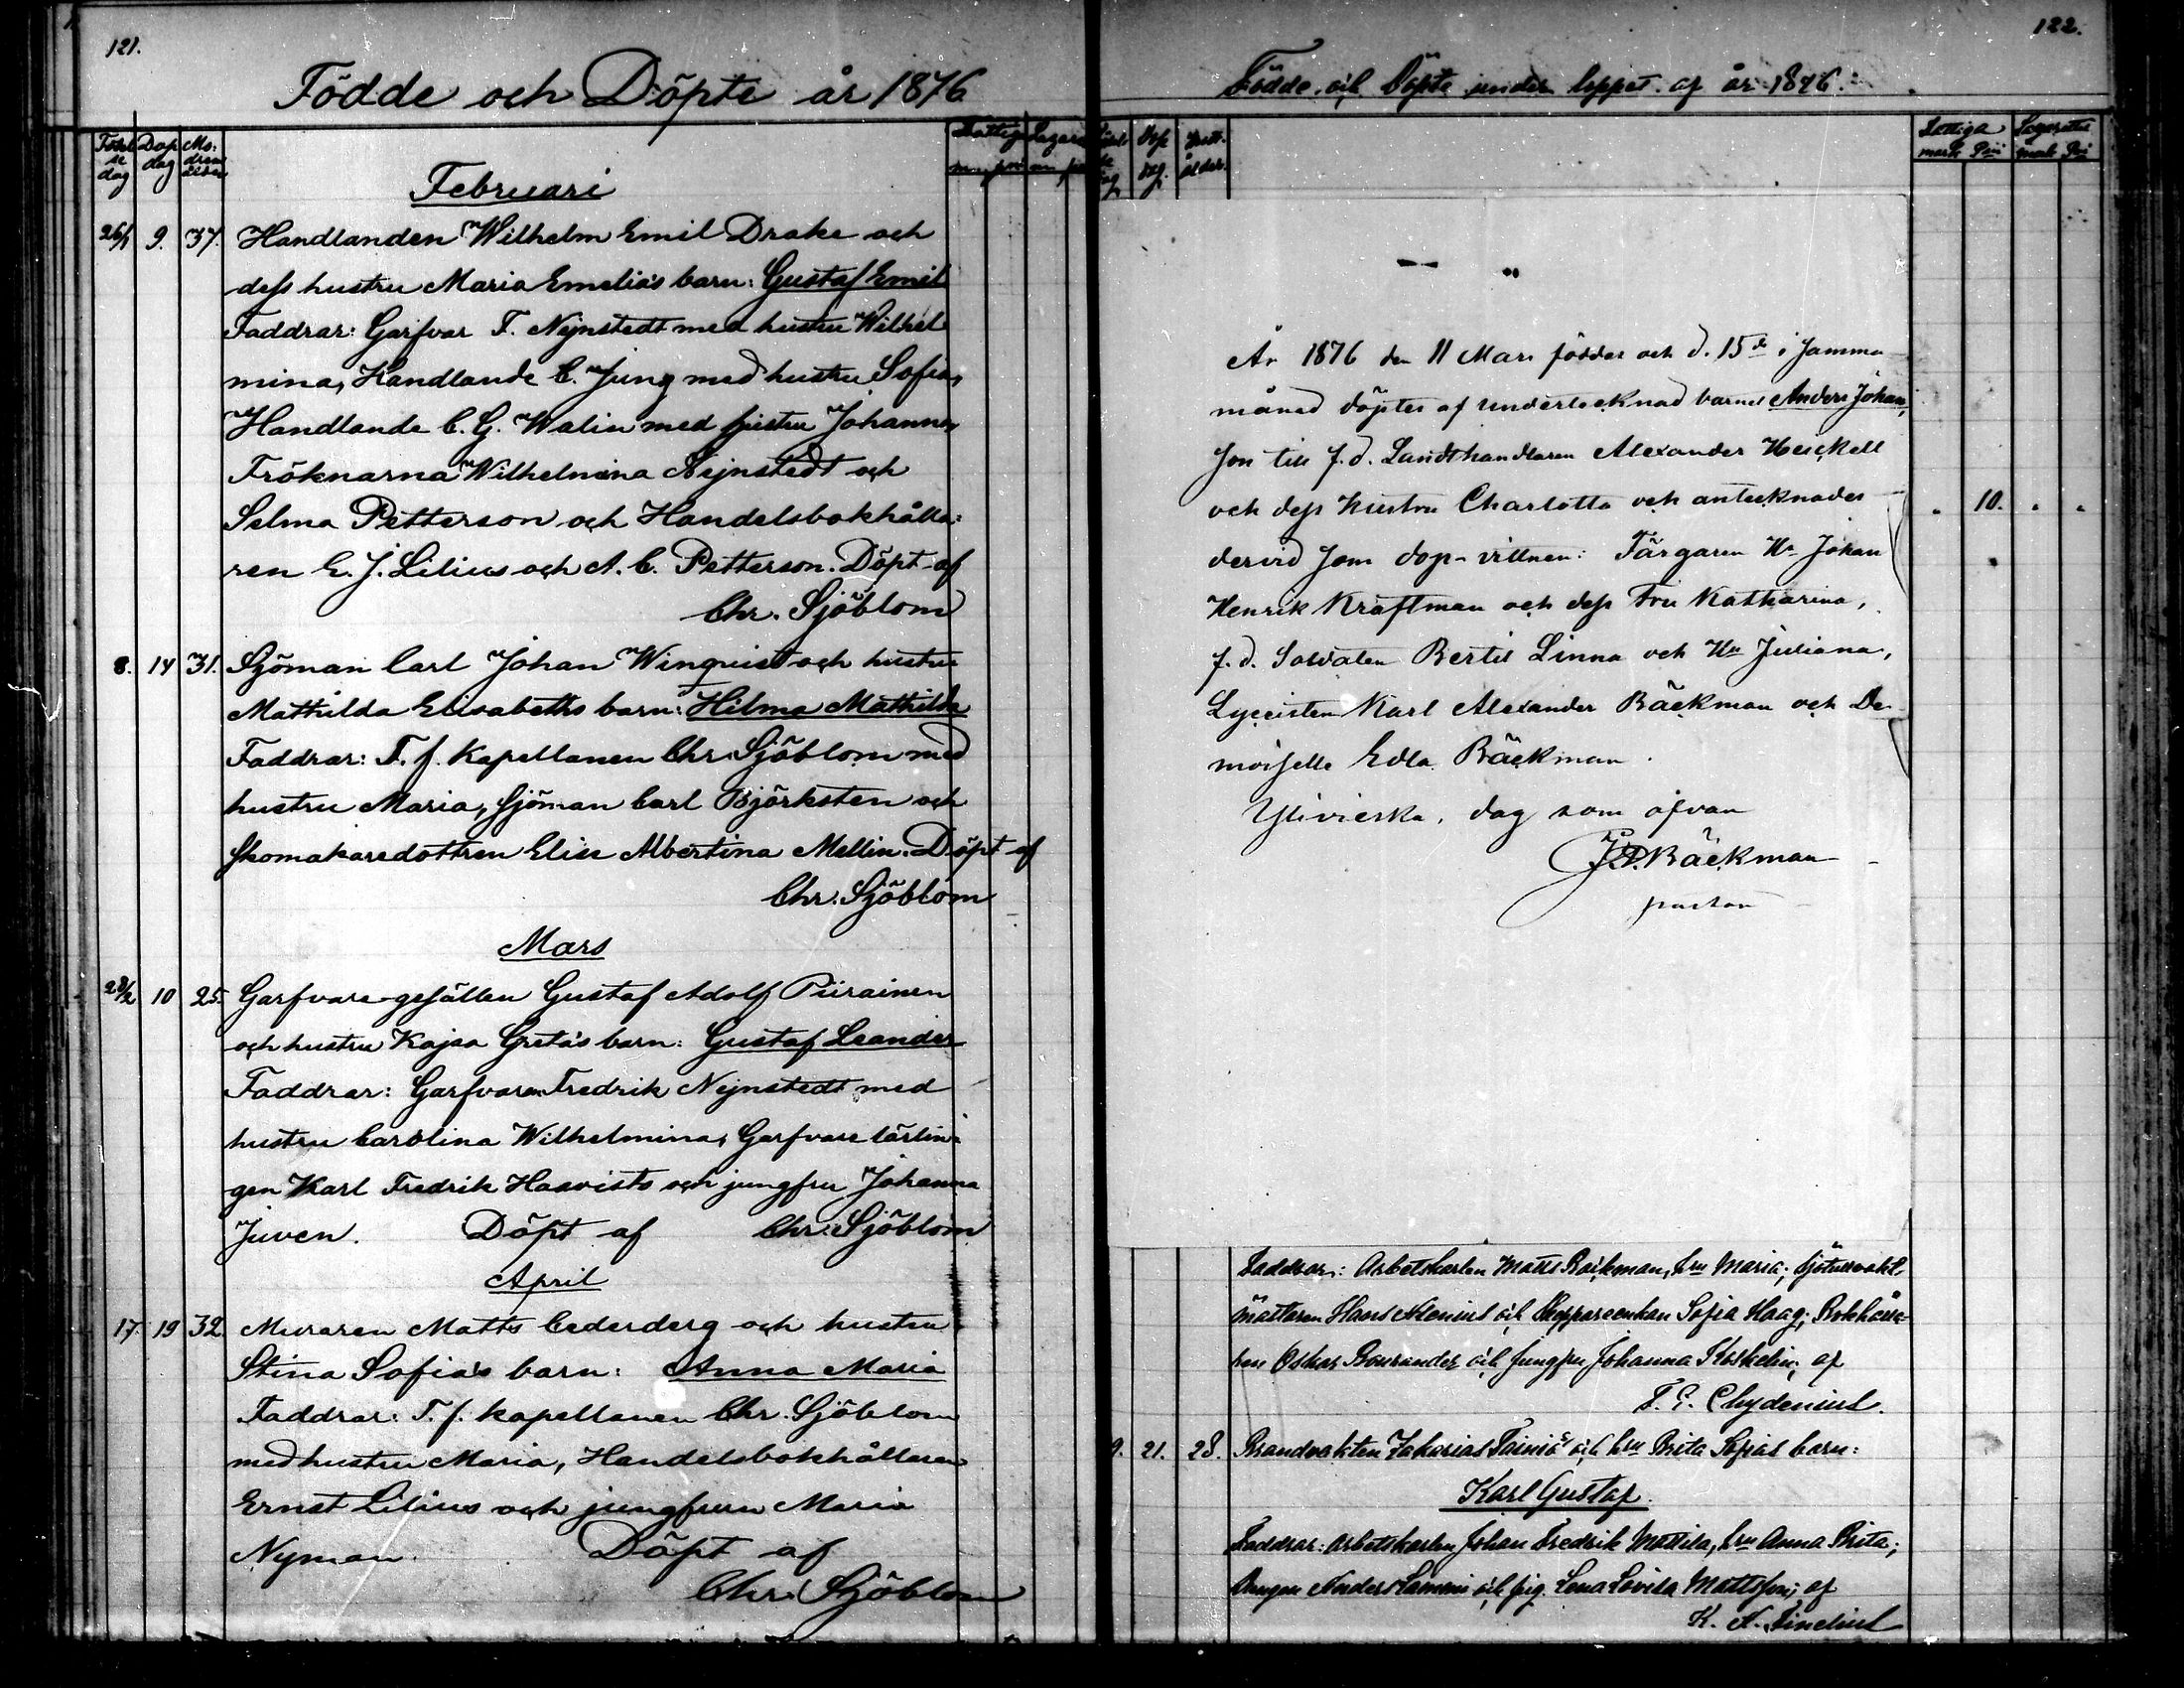 121.
Födde och Döpte år 1876
Födel
se
dag
Dop
dag
Mo:
drens
ålder
Fattig
Lazare
m. pni m p
Februari
26/1 9. 37. Handlanden Wilhelm Emil Drake och
dess hustru Maria Emelias barn: Gustaf Emil
Faddrar: Garfvar F. Nejnstedt med hustru Wilhel
mina, Handlande C. Jung med hustru Sofia,
Handlande C. G. Walin med hustru Johanna,
Fröknarna Wilhelmina Nejnstedt och
Selma Petterson och Handelsbokhålla:
ren E. J. Lilius och A. C. Petterson. Döpt af
Chr. Sjöblom
8. 14 31. Sjöman Carl Johan Winquist och hustru
Mathilda Elisabeths barn: Hilma Mathilda
Faddrar: T. f. Kapellanen Chr. Sjöblom med
hustru Maria, sjöman Carl Björksten och
skomakaredottren Elise Albertina Mellin. Döpt af
Chr. Sjöblom
Mars
28/2 10 25. Garfvare-gesällen Gustaf Adolf Piirainen
och hustru Kajsa Gretas barn: Gustaf Leander
Faddrar: Garfvaren Fredrik Nejnstedt med
hustru Carolina Wilhelmina, Garfvare lärlin-
gen Karl Fredrik Haavisto och jungfru Johanna
Juven. Döpt af Chr. Sjöblom
April
17. 19 32. Muraren Matts Cederderg och hustru
Stina Sofias barn: Anna Maria
Faddrar: T. f. kapellanen Chr. Sjöblom
med hustru Maria, Handelsbokhållaren
Ernst Lilius och jungfrun Maria
Nyman. Döpt af
Chr. Sjöblom
122.
Födde och Döpte under loppet af år 1876.
Dop
dag.
ålder.
Fattiga
mark Pni
Lazarettet
mark Pni
År 1876 den 11 Mars föddes och d. 15de i samma
månad döptes af undertecknad barnet Anders Johan,
son till f. d. Landthandlaren Alexander Heickell
och dess hustru Charlotta och antecknades
10.
dervid som dop-vittnen: Färgaren Hr Johan
Henrik Kraftman och dess Fru Katharina,
f. d. Soldaten Bertil Linna och Hu Juliana,
Lyceisten Karl Alexander Bäckman och De-
moiselle Edla Bäckman.
Ylivieska, dag som ofvan
J. P. Bäckman
pastor
Faddrar: Arbetskarlen Matts Bäckman, hru Maria; sjötullvakt-
mästaren Hans Alenius och Skeppareenkan Sofia Haag; Bokhålla-
ren Oskar Bonrander och jungfru Johanna Koskelin; af
T. E. Chydenius.
9. 21. 28. Brandvakten Zakarias Tainios och hru Brita Sofias barn:
Karl Gustaf.
Faddrar: Arbetskarlen Johan Fredrik Mattila, hru Anna Brita;
Drengen Anders Lammi och pig. Lena Lovisa Mattsson; af
K. A. Finelius